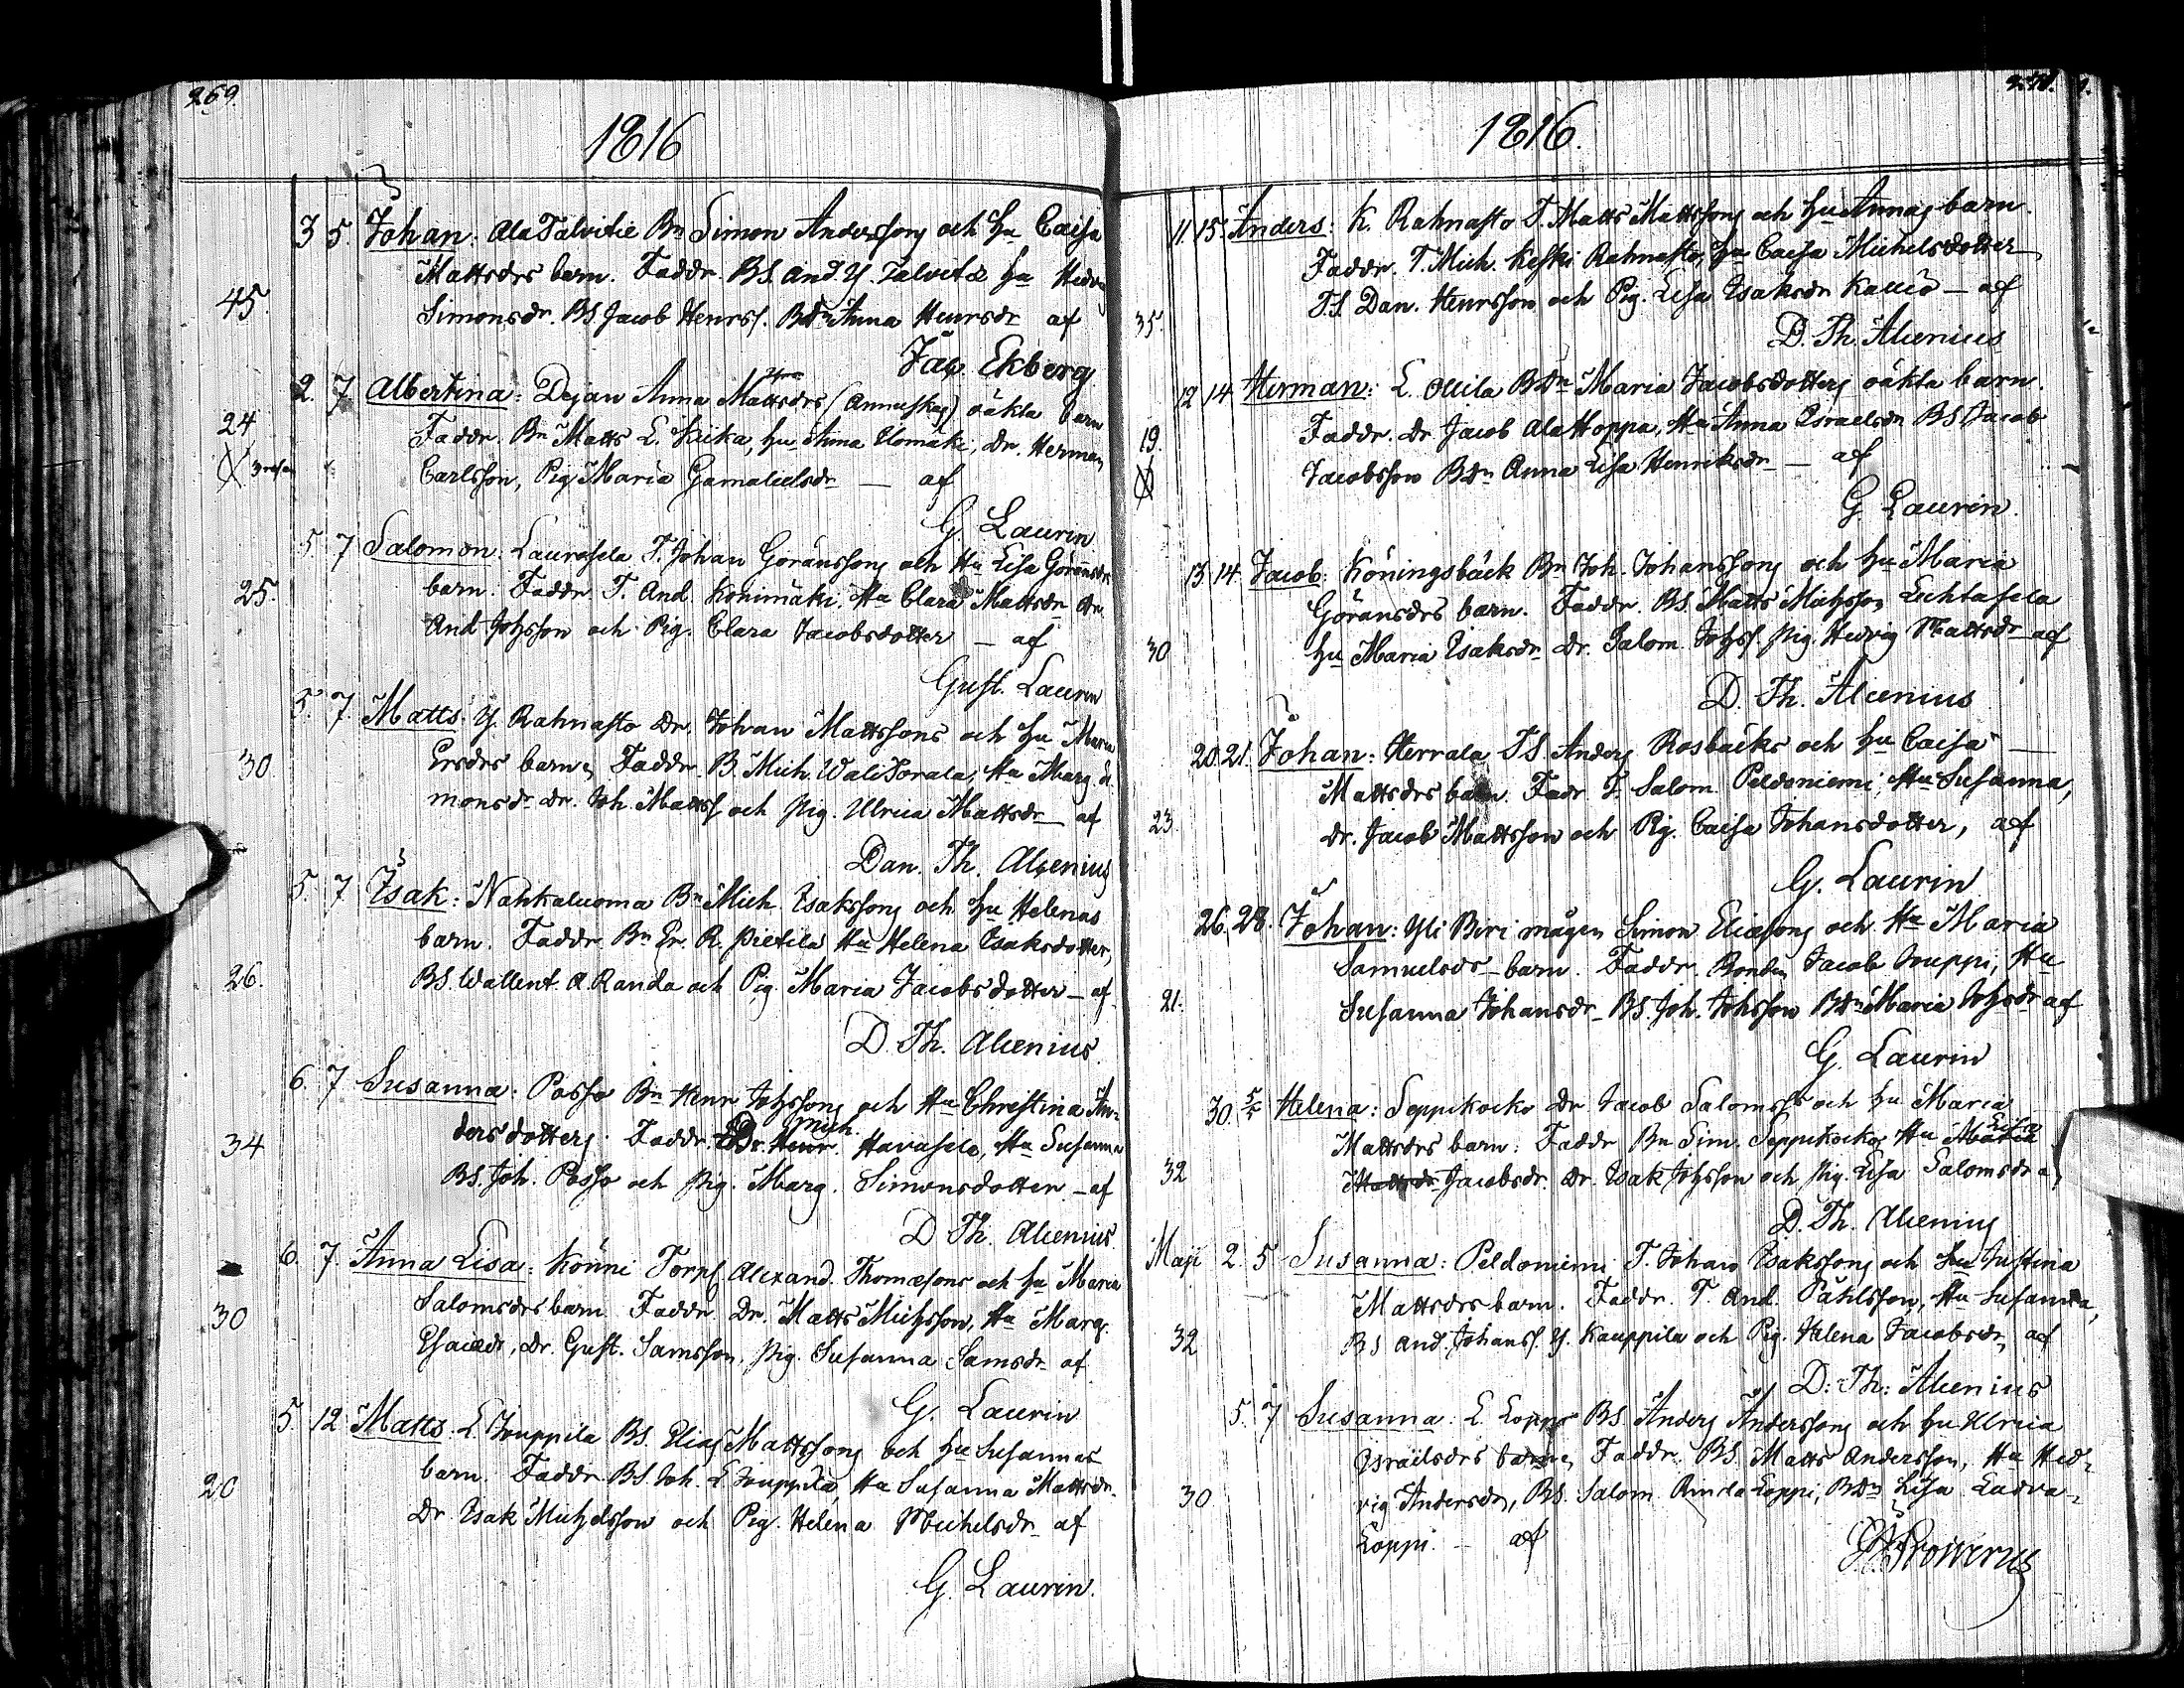 269
1816
3 5. Johan: Ala Talvitie Bn Simon Anderssons och Hu Caisa
Mattsdrs barn. Faddr. BS. And. Y. Talvitie Hu Hedv
45. Simonsdr. BS Jacob Henrss. BDr Anna Henrsdr af
Jac. Ekberg
2. 7. Albertina: Dejan Anna Mattsdrs (Annuskas) oäkta barn
24 Faddr. Bn Matts L. Kuka, Hu Anna Uomäki, Dr. Herman
Carlsson, Pig. Maria Gamalielsdr — af
G. Laurin
5. 7 Salomon: Laurosela T. Johan Göranssons och Hu Lisa Göransdrs
25. barn. Faddr. T. And. Konimäki. Hu Clara Mattsdr Dr.
And. Johsson och Pig. Clara Jacobsdotter — af
Gust. Laurin
5. 7. Matts: Y. Rahnasto Dr. Johan Mattssons och Hu Maria
30. Ersdrs barn, Faddr. B. Mich. WaliTorala, Hu Marg. Si-
monsdr Dr. Joh. Matss. och Pig. Ulrica Mattsdr af
Dan. Th. Alcenius
5. 7 Isak: Nahkaluoma Bn Mich. Isakssons och Hu Helenas
barn. Faddr. Bn Er. R. Pietilä Hu Helena Isaksdotter,
26. BS. Wallent. A. Randa och Pig. Maria Jacobsdotter — af
D. Th. Alcenius
6. 7 Susanna: Passo Bn Henr Johssons och Hu Christina An-
Mich.
34 dersdotters. Faddr. Dr. Henr. Havasela, Hu Susanna
BS. Joh. Passo och Pig. Marg. Simonsdotter — af
D Th. Alcenius
6. 7. Anna Lisa: Könni Torps Alexand. Thomæsons och Hu Maria
30 Salomsdrs barn. Faddr. Dr. Matts Michsson, Hu Marg.
Esaiædr, Dr. Gust. Samsson, Pig. Susanna Samsdr af
G. Laurin
5. 12 Matts: L. Jouppila BS. Elias Mattssons och Hu Susannas
20 barn. Faddr. BS. Joh. L Jouppila Hu Susanna Mattsdr
Dr. Isak Michelsson och Pig. Helena Michelsdr af
G. Laurin.
1816.
11. 15. Anders: K. Rahnasto T. Matts Mattssons och Hu Annas barn.
Faddr. T. Mich. Keski Rahnasto, Hu Caisa Michelsdotter
35 T.S. Dan. Henrsson och Pig. Lisa Isaksdr Kauco — af
D. Th. Alcenius
12 14 Herman: L. Ollila BDr Maria Jacobsdotters oäkta barn.
19. Faddr. Dr Jacob AlaHoppa, Hu Anna Israelsdr BS Jacob
Jacobsson BDr Anna Lisa Henriksdr — af
G. Laurin.
13. 14. Jacob: Köningsbäck Bn Joh. Johanssons och Hu Maria
Göransdrs barn. Faddr. BS. Matts Michsson Luhtasela
30 Hu Maria Isaksdr Dr. Salom. Johss. Pig. Hedvig Mattsdr af
D. Th. Alcenius
20. 21. Johan: Herrala TS. Anders Rosbäcks och Hu Caisa
Mattsdrs barn. Fadr. T. Salom. Peldoniemi, Hu Susanna,
23. Dr. Jacob Mattsson och Pig. Caisa Johansdotter, af
G. Laurin
26. 28. Johan: Yli Biri mågen Simon Eliæsons och Hu Maria
Samuelsdr barn. Faddr. Bonden Jacob Jouppi, Hu
21. Susanna Johansdr BS. Joh. Johsson BDr Maria Johsdr af
G. Laurin
30. 5/5 Helena: Seppikoko Dr Jacob Salomss och Hu Maria
Lisa
Mattsdrs barn: Faddr Bn Sim. Seppikoko, Hu Maria
32 Mattsdr Jacobsdr. Dr. Isak Johsson och Pig. Lisa Salomsdr a
D. Th. Alcenius
Maji 2. 5 Susanna: Peldoniemi T. Johan Isakssons och Hu Justina
Mattsdrs barn. Faddr. T. And. Påhlsson, Hu Susanna,
32 BS And. Johanss. Y. Kauppila och Pig. Helena Jacobsdr, af
D: Th: Alcenius
5. 7 Susanna: L. Loppi BS. Anders Anderssons och Hu Ulrica
Israelsdrs barn, Faddr. BS. Matts Andersson, Hu Hed-
30 vig Andersdr, BS. Salom. Rinda Loppi, BDr Lisa Ladva-
Loppi. — af